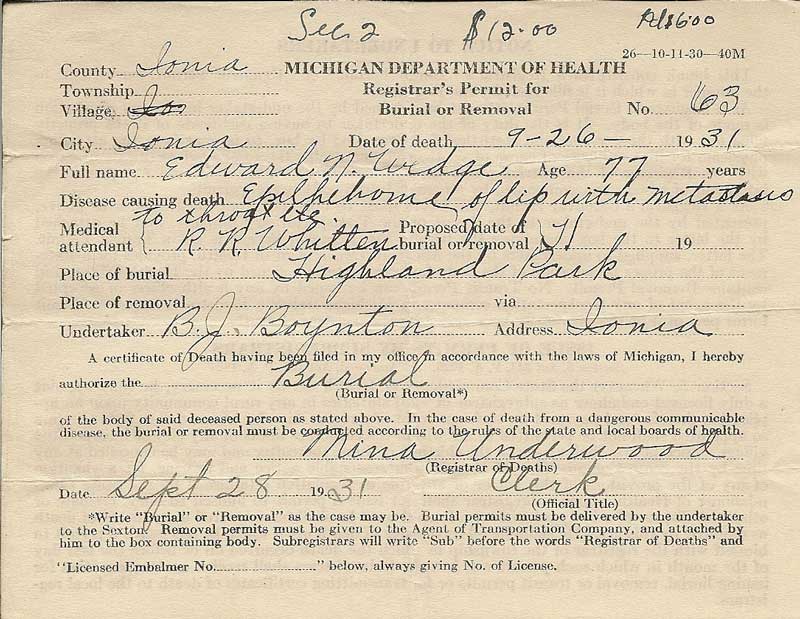 Sec. 2 $12.00
26—10-11-30—40M
County Ionia MICHIGAN DEPARTMENT OF HEALTH
Township Registrar's Permit for
Village Io Burial or Removal No. 63
City Ionia Date of death 9-26- 1931
Full name Edward N. Wedge Age 77 years
Disease causing death Epilhehome of lip with metastasis
to throat etc.
Medical attendant R. R. Whitten Proposed date of burial or removal 19
Place of burial Highland Park
Place of removal via
Undertaker B. J. Boynton Address Ionia
A certificate of Death having been filed in my office in accordance with the laws of Michigan, I hereby
authorize the Burial
(Burial or Removal*)
of the body of said deceased person as stated above. In the case of death from a dangerous communicable
disease, the burial or removal must be conducted according to the rules of the state and local boards of health.
Mina Underwood
(Registrar of Deaths)
Date Sept 28 1931 Clerk
(Official Title)
*Write "Burial" or "Removal" as the case may be. Burial permits must be delivered by the undertaker
to the Sexton. Removal permits must be given to the Agent of Transportation Company, and attached by
him to the box containing body. Subregistrars will write "Sub" before the words "Registrar of Deaths" and
"Licensed Embalmer No." below, always giving No. of License.